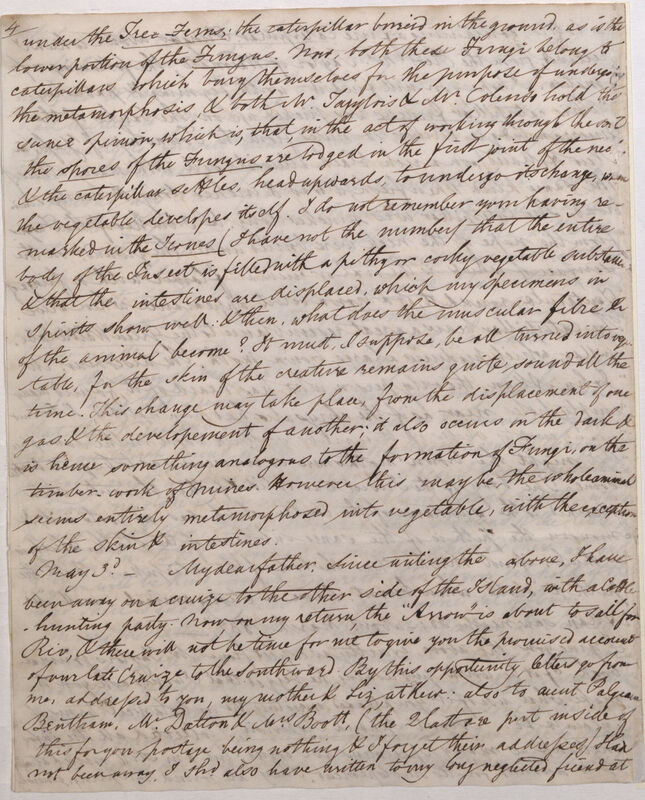 4
under the Tree Ferns: the caterpillar buried in the ground, as is the
lower portion of the Fungus. Now, both these Fungi belong to
caterpillars which bury themselves for the purpose of undergoing
the metamorphosis, & both Mr. & Mr. Colenso hold the
same opinion, which is, that, in the act of working through the soil
the spores of the Fungus are lodged in the first joint of the neck
& the caterpillar settles, head upwards, to undergo its change, when
the vegetable developes itself. I do not remember your having re-
marked in the Icones (I have not the number) that the entire
body of the Insect is filled with a pithy or corky vegetable substance
& that the intestines are displaced, which my specimens in
spirits show well: & then, what does the muscular fibre &c
of the animal become? It must, I suppose, be all turned into vege-
table, for the skin of the creature remains quite sound all the
time. This change may take place, from the displacement of one
gas & the developement of another: it also occurs in the dark &
is hence something analogous to the formation of Fungi, on the
timber work of mines. However this may be, the whole animal
seems entirely metamorphosed into vegetable, with the exception
of the skin & intestines.
May 3d — My dear father. Since writing the above, I have
been away on a cruize to the other side of the Island, with a Cattle
-hunting party. Now on my return, the "Arrow" is about to sail for
Rio, & there will not be time for me to give you the promised account
of our late Cruize to the southward. By this opportunity, letters go from
me, addressed to you, my mother & Liz, at Kew: also to aunt Palgrave
Bentham, Mr. Dalton & Mrs Boott, (the 2 last are put inside of
this for you, postage being nothing & I forget their addresses) Had I
not been away, I shd also have written to my long neglected friend at